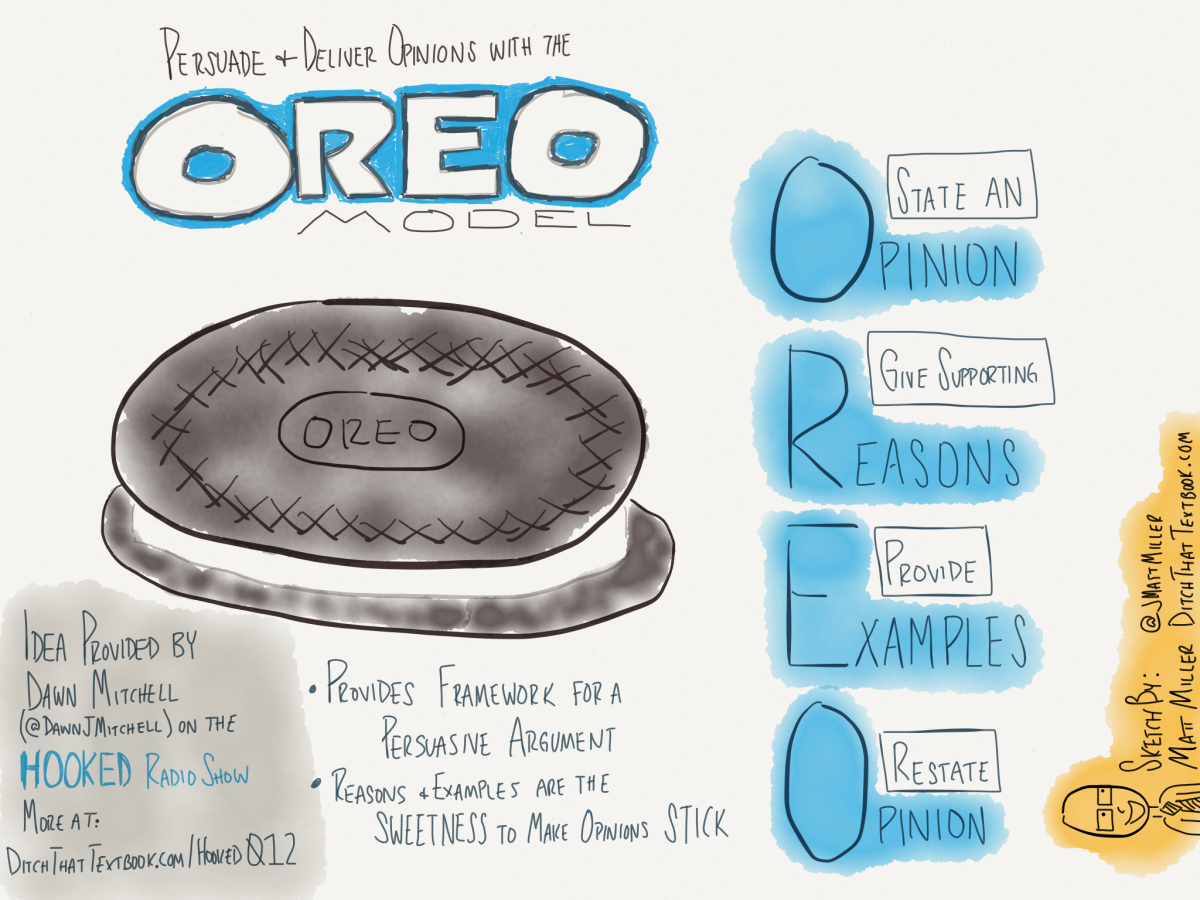 PERSUADE + DELIVER OPINIONS WITH THE
OREO
MODEL
OREO
STATE AN
OPINION
GIVE SUPPORTING
REASONS
PROVIDE
EXAMPLES
RESTATE
OPINION
IDEA PROVIDED BY
DAWN MITCHELL
(@DAWNJMITCHELL) ON THE
HOOKED RADIO SHOW
MORE AT:
DITCHTHATTEXTBOOK.COM/HOOKEDQ12
• PROVIDES FRAMEWORK FOR A
PERSUASIVE ARGUMENT
• REASONS + EXAMPLES ARE THE
SWEETNESS TO MAKE OPINIONS STICK
SKETCH BY: @JMATTMILLER
MATT MILLER DITCHTHATTEXTBOOK.COM